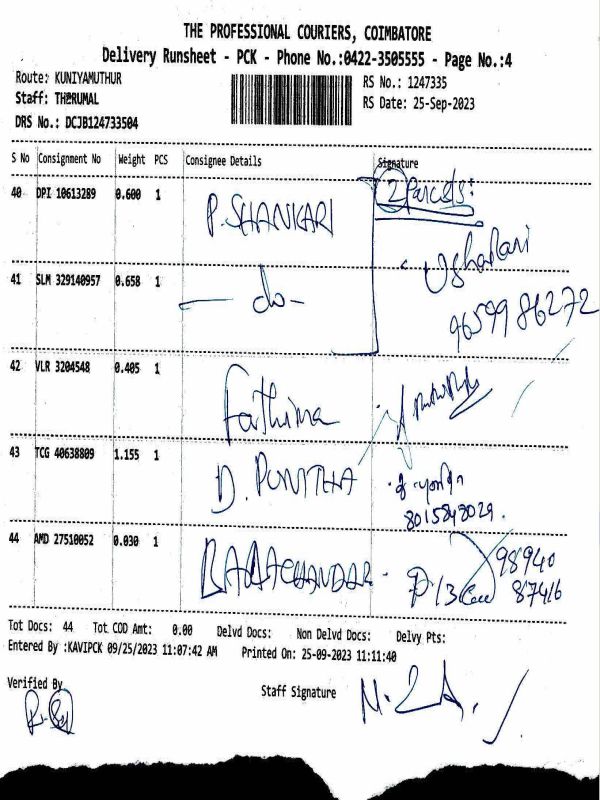 THE PROFESSIONAL COURIERS, COIMBATORE
Delivery Runsheet - PCK - Phone No.:0422-3505555 - Page No.:4
Route: KUNIYAMUTHUR
RS No.: 1247335
Staff: THIRUMAL
RS Date: 25-Sep-2023
DRS No.: DCJB124733504
S No Consignment No Weight PCS Consignee Details Signature
40 DPI 10613289 0.600 1 P. SHANKARI 2 Parcels:
Usharani
41 SLM 329140957 0.658 1 - do -
9659986272
42 VLR 3204548 0.405 1 Fathima
43 TCG 40638809 1.155 1 D. PUNITHA
8015848029.
44 AMD 27510052 0.030 1 BALACHANDAR - 98940
87416
Tot Docs: 44 Tot COD Amt: 0.00 Delvd Docs: Non Delvd Docs: Delvy Pts:
Entered By :KAVIPCK 09/25/2023 11:07:42 AM Printed On: 25-09-2023 11:11:40
Verified By
Staff Signature